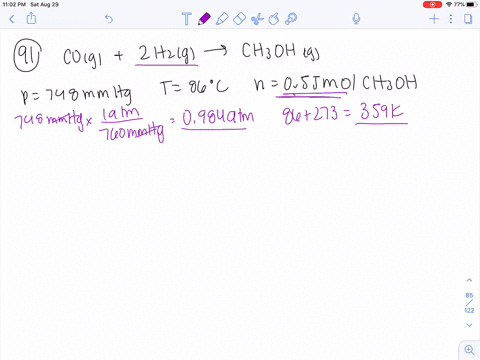 11:02 PM Sat Aug 29
77%
91 CO(g) + 2H2(g) → CH3OH (g)
p = 748 mmHg T = 86°C n = 0.55mol CH3OH
748 mmHg × 1atm / 760mmHg = 0.984atm 86+273 = 359K
85
/
122